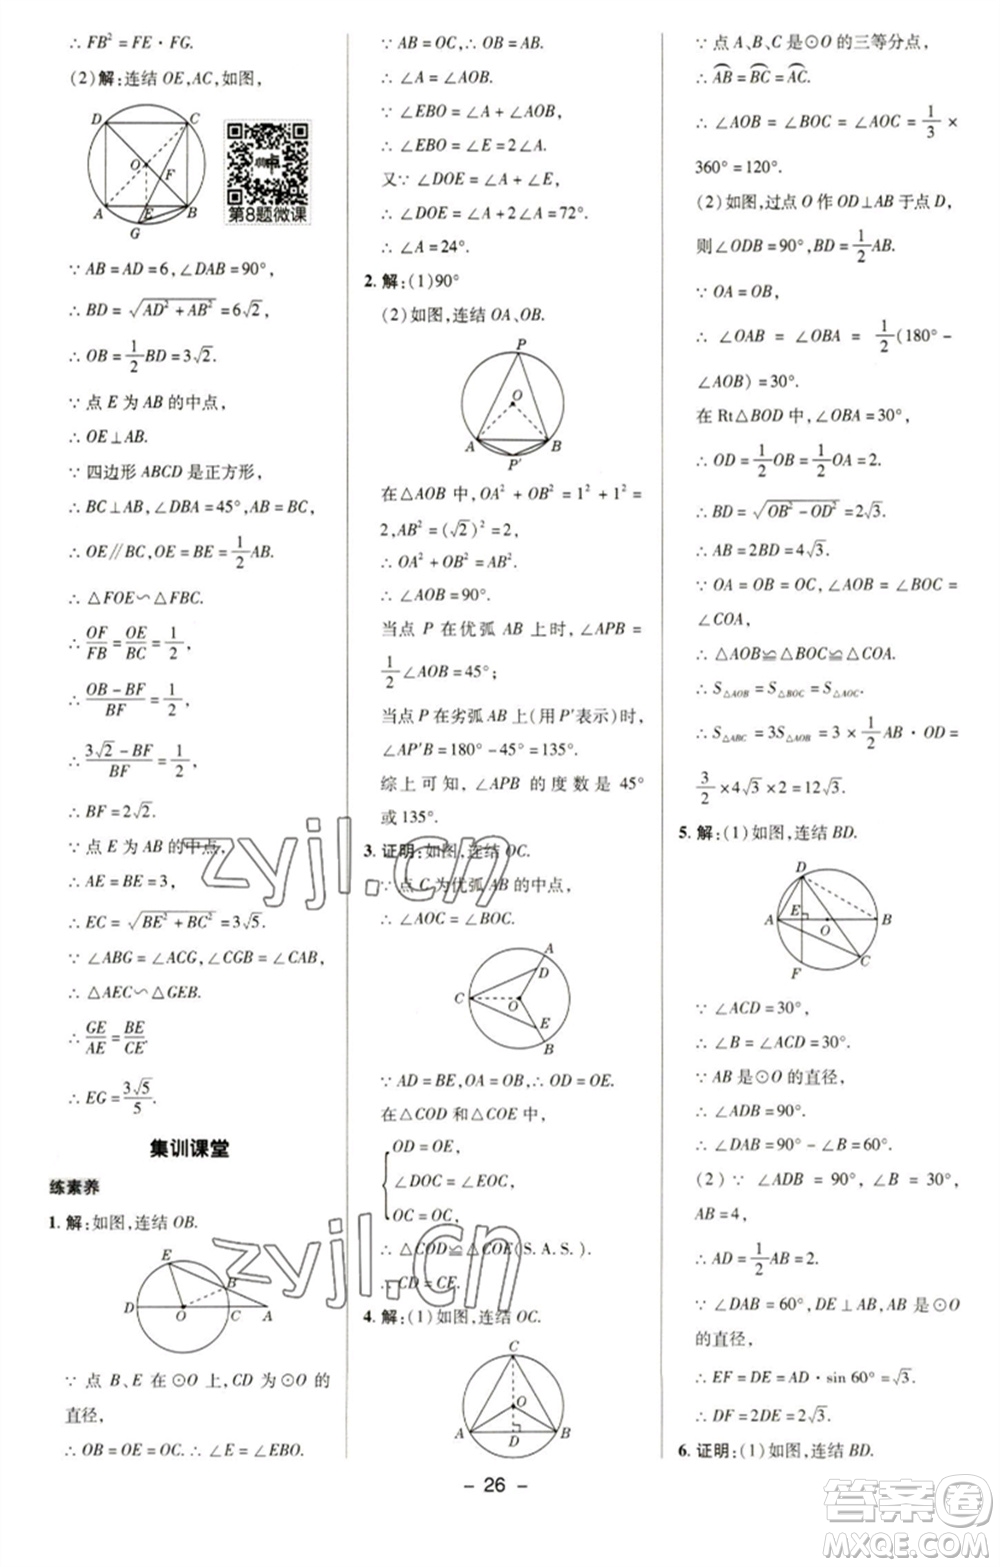 ∴ FB² = FE · FG.
(2)解:连结 OE,AC,如图,
D C O F A E B G
第8题微课
∵ AB = AD = 6, ∠DAB = 90°,
∴ BD = √(AD² + AB²) = 6√2.
∴ OB = 1/2 BD = 3√2.
∵ 点 E 为 AB 的中点,
∴ OE⊥AB.
∵ 四边形 ABCD 是正方形,
∴ BC⊥AB, ∠DBA = 45°, AB = BC,
∴ OE∥BC, OE = BE = 1/2 AB.
∴ △FOE∽△FBC.
∴ OF/FB = OE/BC = 1/2,
∴ (OB − BF)/BF = 1/2,
∴ (3√2 − BF)/BF = 1/2,
∴ BF = 2√2.
∵ 点 E 为 AB 的中点,
∴ AE = BE = 3,
∴ EC = √(BE² + BC²) = 3√5.
∵ ∠ABG = ∠ACG, ∠GEB = ∠CAB,
∴ △AEC∽△GEB.
∴ GE/AE = BE/CE.
∴ EG = 3√5/5.
集训课堂
练素养
1. 解:如图,连结 OB.
E B D O C A
∵ 点 B、E 在 ⊙O 上, CD 为 ⊙O 的
直径,
∴ OB = OE = OC. ∴ ∠E = ∠EBO.
∵ AB = OC, ∴ OB = AB.
∴ ∠A = ∠AOB.
∵ ∠EBO = ∠A + ∠AOB,
∴ ∠EBO = ∠E = 2∠A.
又∵ ∠DOE = ∠A + ∠E,
∴ ∠DOE = ∠A + 2∠A = 72°.
∴ ∠A = 24°.
2. 解:(1)90°
(2)如图,连结 OA、OB.
P O A B P′
在△AOB 中, OA² + OB² = 1² + 1² =
2, AB² = (√2)² = 2,
∴ OA² + OB² = AB².
∴ ∠AOB = 90°.
当点 P 在优弧 AB 上时, ∠APB =
1/2 ∠AOB = 45°;
当点 P 在劣弧 AB 上(用 P′表示)时,
∠AP′B = 180° − 45° = 135°.
综上可知, ∠APB 的度数是 45°
或 135°.
3. 证明:如图,连结 OC.
∵ 点 C 为优弧 AB 的中点,
∴ ∠AOC = ∠BOC.
A D C O E B
∵ AD = BE, OA = OB, ∴ OD = OE.
在△COD 和△COE 中,
OD = OE,
∠DOC = ∠EOC,
OC = OC,
∴ △COD≌△COE(S.A.S.).
∴ CD = CE.
4. 解:(1)如图,连结 OC.
C O A D B
∵ 点 A、B、C 是⊙O 的三等分点,
∴ AB⌒ = BC⌒ = AC⌒.
∴ ∠AOB = ∠BOC = ∠AOC = 1/3 ×
360° = 120°.
(2)如图,过点 O 作 OD⊥AB 于点 D,
则∠ODB = 90°, BD = 1/2 AB.
∵ OA = OB,
∴ ∠OAB = ∠OBA = 1/2 (180° −
∠AOB) = 30°.
在 Rt△BOD 中, ∠OBA = 30°,
∴ OD = 1/2 OB = 1/2 OA = 2.
∴ BD = √(OB² − OD²) = 2√3.
∴ AB = 2BD = 4√3.
∵ OA = OB = OC, ∠AOB = ∠BOC =
∠COA,
∴ △AOB≌△BOC≌△COA.
∴ S△AOB = S△BOC = S△AOC.
∴ S△ABC = 3S△AOB = 3 × 1/2 AB · OD =
3/2 × 4√3 × 2 = 12√3.
5. 解:(1)如图,连结 BD.
D A E O B F C
∵ ∠ACD = 30°,
∴ ∠B = ∠ACD = 30°.
∵ AB 是⊙O 的直径,
∴ ∠ADB = 90°.
∴ ∠DAB = 90° − ∠B = 60°.
(2) ∵ ∠ADB = 90°, ∠B = 30°,
AB = 4,
∴ AD = 1/2 AB = 2.
∵ ∠DAB = 60°, DE⊥AB, AB 是⊙O
的直径,
∴ EF = DE = AD · sin 60° = √3.
∴ DF = 2DE = 2√3.
6. 证明:(1)如图,连结 BD.
– 26 –
zyjl.cn
zyjl.cn
答案卷
MXQE.COM